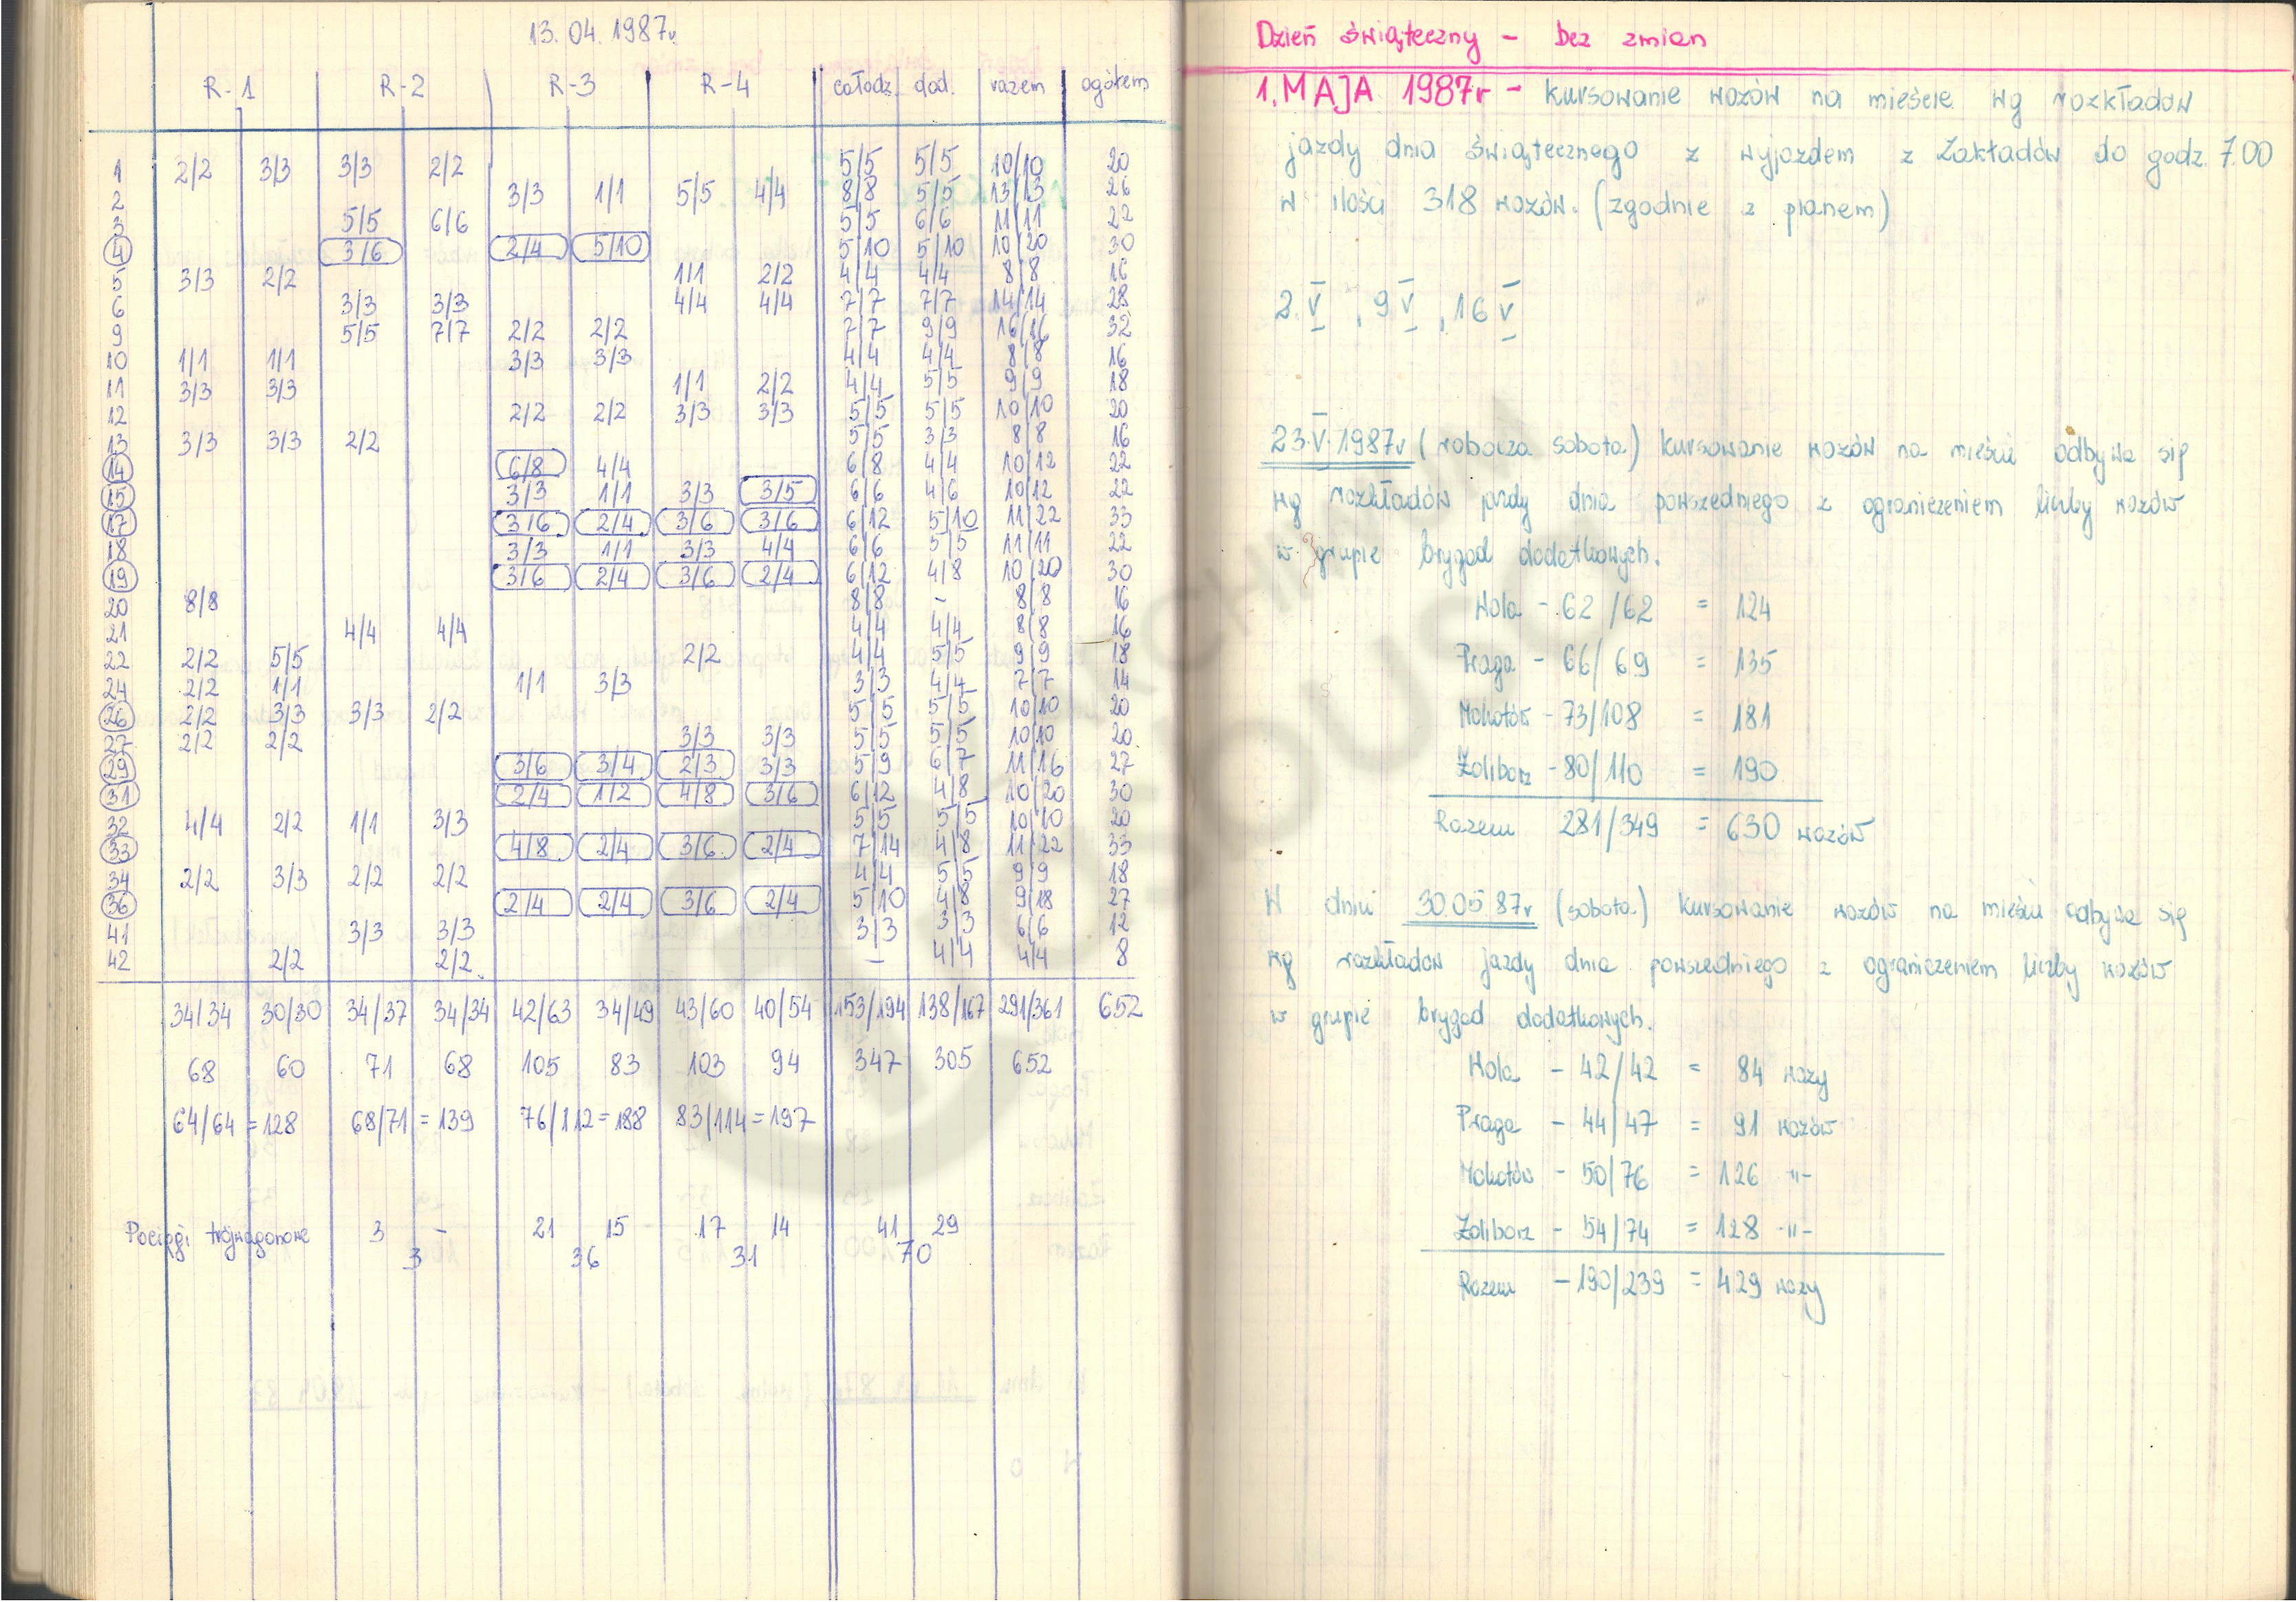 13.04.1987r.
R-1 R-2 R-3 R-4 całodz. dod. razem ogółem
1 2/2 3/3 3/3 2/2 5/5 5/5 10/10 20
2 3/3 1/1 5/5 4/4 8/8 5/5 13/13 26
3 5/5 6/6 5/5 6/6 11/11 22
4 3/6 2/4 5/10 5/10 5/10 10/20 30
5 3/3 2/2 1/1 2/2 4/4 4/4 8/8 16
6 3/3 3/3 4/4 4/4 7/7 7/7 14/14 28
9 5/5 7/7 2/2 2/2 7/7 9/9 16/16 32
10 1/1 1/1 3/3 3/3 4/4 4/4 8/8 16
11 3/3 3/3 1/1 2/2 4/4 5/5 9/9 18
12 2/2 2/2 3/3 3/3 5/5 5/5 10/10 20
13 3/3 3/3 2/2 5/5 3/3 8/8 16
14 6/8 4/4 6/8 4/4 10/12 22
15 3/3 1/1 3/3 3/5 6/6 4/6 10/12 22
17 3/6 2/4 3/6 3/6 6/12 5/10 11/22 33
18 3/3 1/1 3/3 4/4 6/6 5/5 11/11 22
19 3/6 2/4 3/6 2/4 6/12 4/8 10/20 30
20 8/8 8/8 - 8/8 16
21 4/4 4/4 4/4 4/4 8/8 16
22 2/2 5/5 2/2 4/4 5/5 9/9 18
24 2/2 1/1 1/1 3/3 3/3 4/4 7/7 14
26 2/2 3/3 3/3 2/2 5/5 5/5 10/10 20
27 2/2 2/2 3/3 3/3 5/5 5/5 10/10 20
29 3/6 3/4 2/3 3/3 5/9 6/7 11/16 27
31 2/4 1/2 4/8 3/6 6/12 4/8 10/20 30
32 4/4 2/2 1/1 3/3 5/5 5/5 10/10 20
33 4/8 2/4 3/6 2/4 7/14 4/8 11/22 33
34 2/2 3/3 2/2 2/2 4/4 5/5 9/9 18
36 2/4 2/4 3/6 2/4 5/10 4/8 9/18 27
41 3/3 3/3 3/3 3/3 6/6 12
42 2/2 2/2 - 4/4 4/4 8
34/34 30/30 34/37 34/34 42/63 34/49 43/60 40/54 153/194 138/167 291/361 652
68 60 71 68 105 83 103 94 347 305 652
64/64 = 128 68/71 = 139 76/112 = 188 83/114 = 197
Pociągi trójwagonowe 3 - 21 15 17 14 41 29
3 36 31 70
Dzień świąteczny - bez zmian
1. MAJA 1987r - kursowanie wozów na mieście wg rozkładów
jazdy dnia świątecznego z wyjazdem z Zakładów do godz. 7.00
w ilości 318 wozów. (zgodnie z planem)
2.V, 9 V, 16 V
23.V.1987r (robocza sobota) kursowanie wozów na mieście odbywa się
wg rozkładów jazdy dnia powszedniego z ograniczeniem liczby wozów
w grupie brygad dodatkowych.
Wola - 62/62 = 124
Praga - 66/69 = 135
Mokotów - 73/108 = 181
Żoliborz - 80/110 = 190
Razem 281/349 = 630 wozów
W dniu 30.05.87r (sobota) kursowanie wozów na mieście odbywa się
wg rozkładów jazdy dnia powszedniego z ograniczeniem liczby wozów
w grupie brygad dodatkowych.
Wola - 42/42 = 84 wozy
Praga - 44/47 = 91 wozów
Mokotów - 50/76 = 126 -"-
Żoliborz - 54/74 = 128 -"-
Razem - 190/239 = 429 wozy